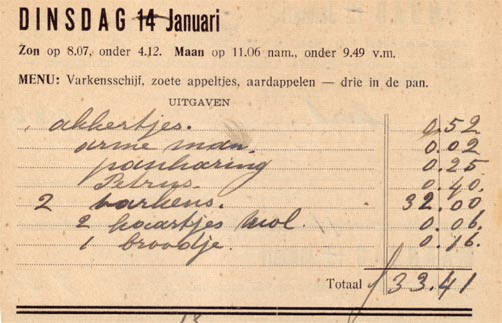 DINSDAG 14 Januari
Zon op 8.07, onder 4.12. Maan op 11.06 nam., onder 9.49 v.m.
MENU: Varkensschijf, zoete appeltjes, aardappelen — drie in de pan.
UITGAVEN
akkertjes. 0.52
arme man. 0.02
panharing 0.25
Petrus. 0.40
2 varkens. 32.00
2 kaartjes wol. 0.06
1 broodje. 0.16
Totaal f 33.41